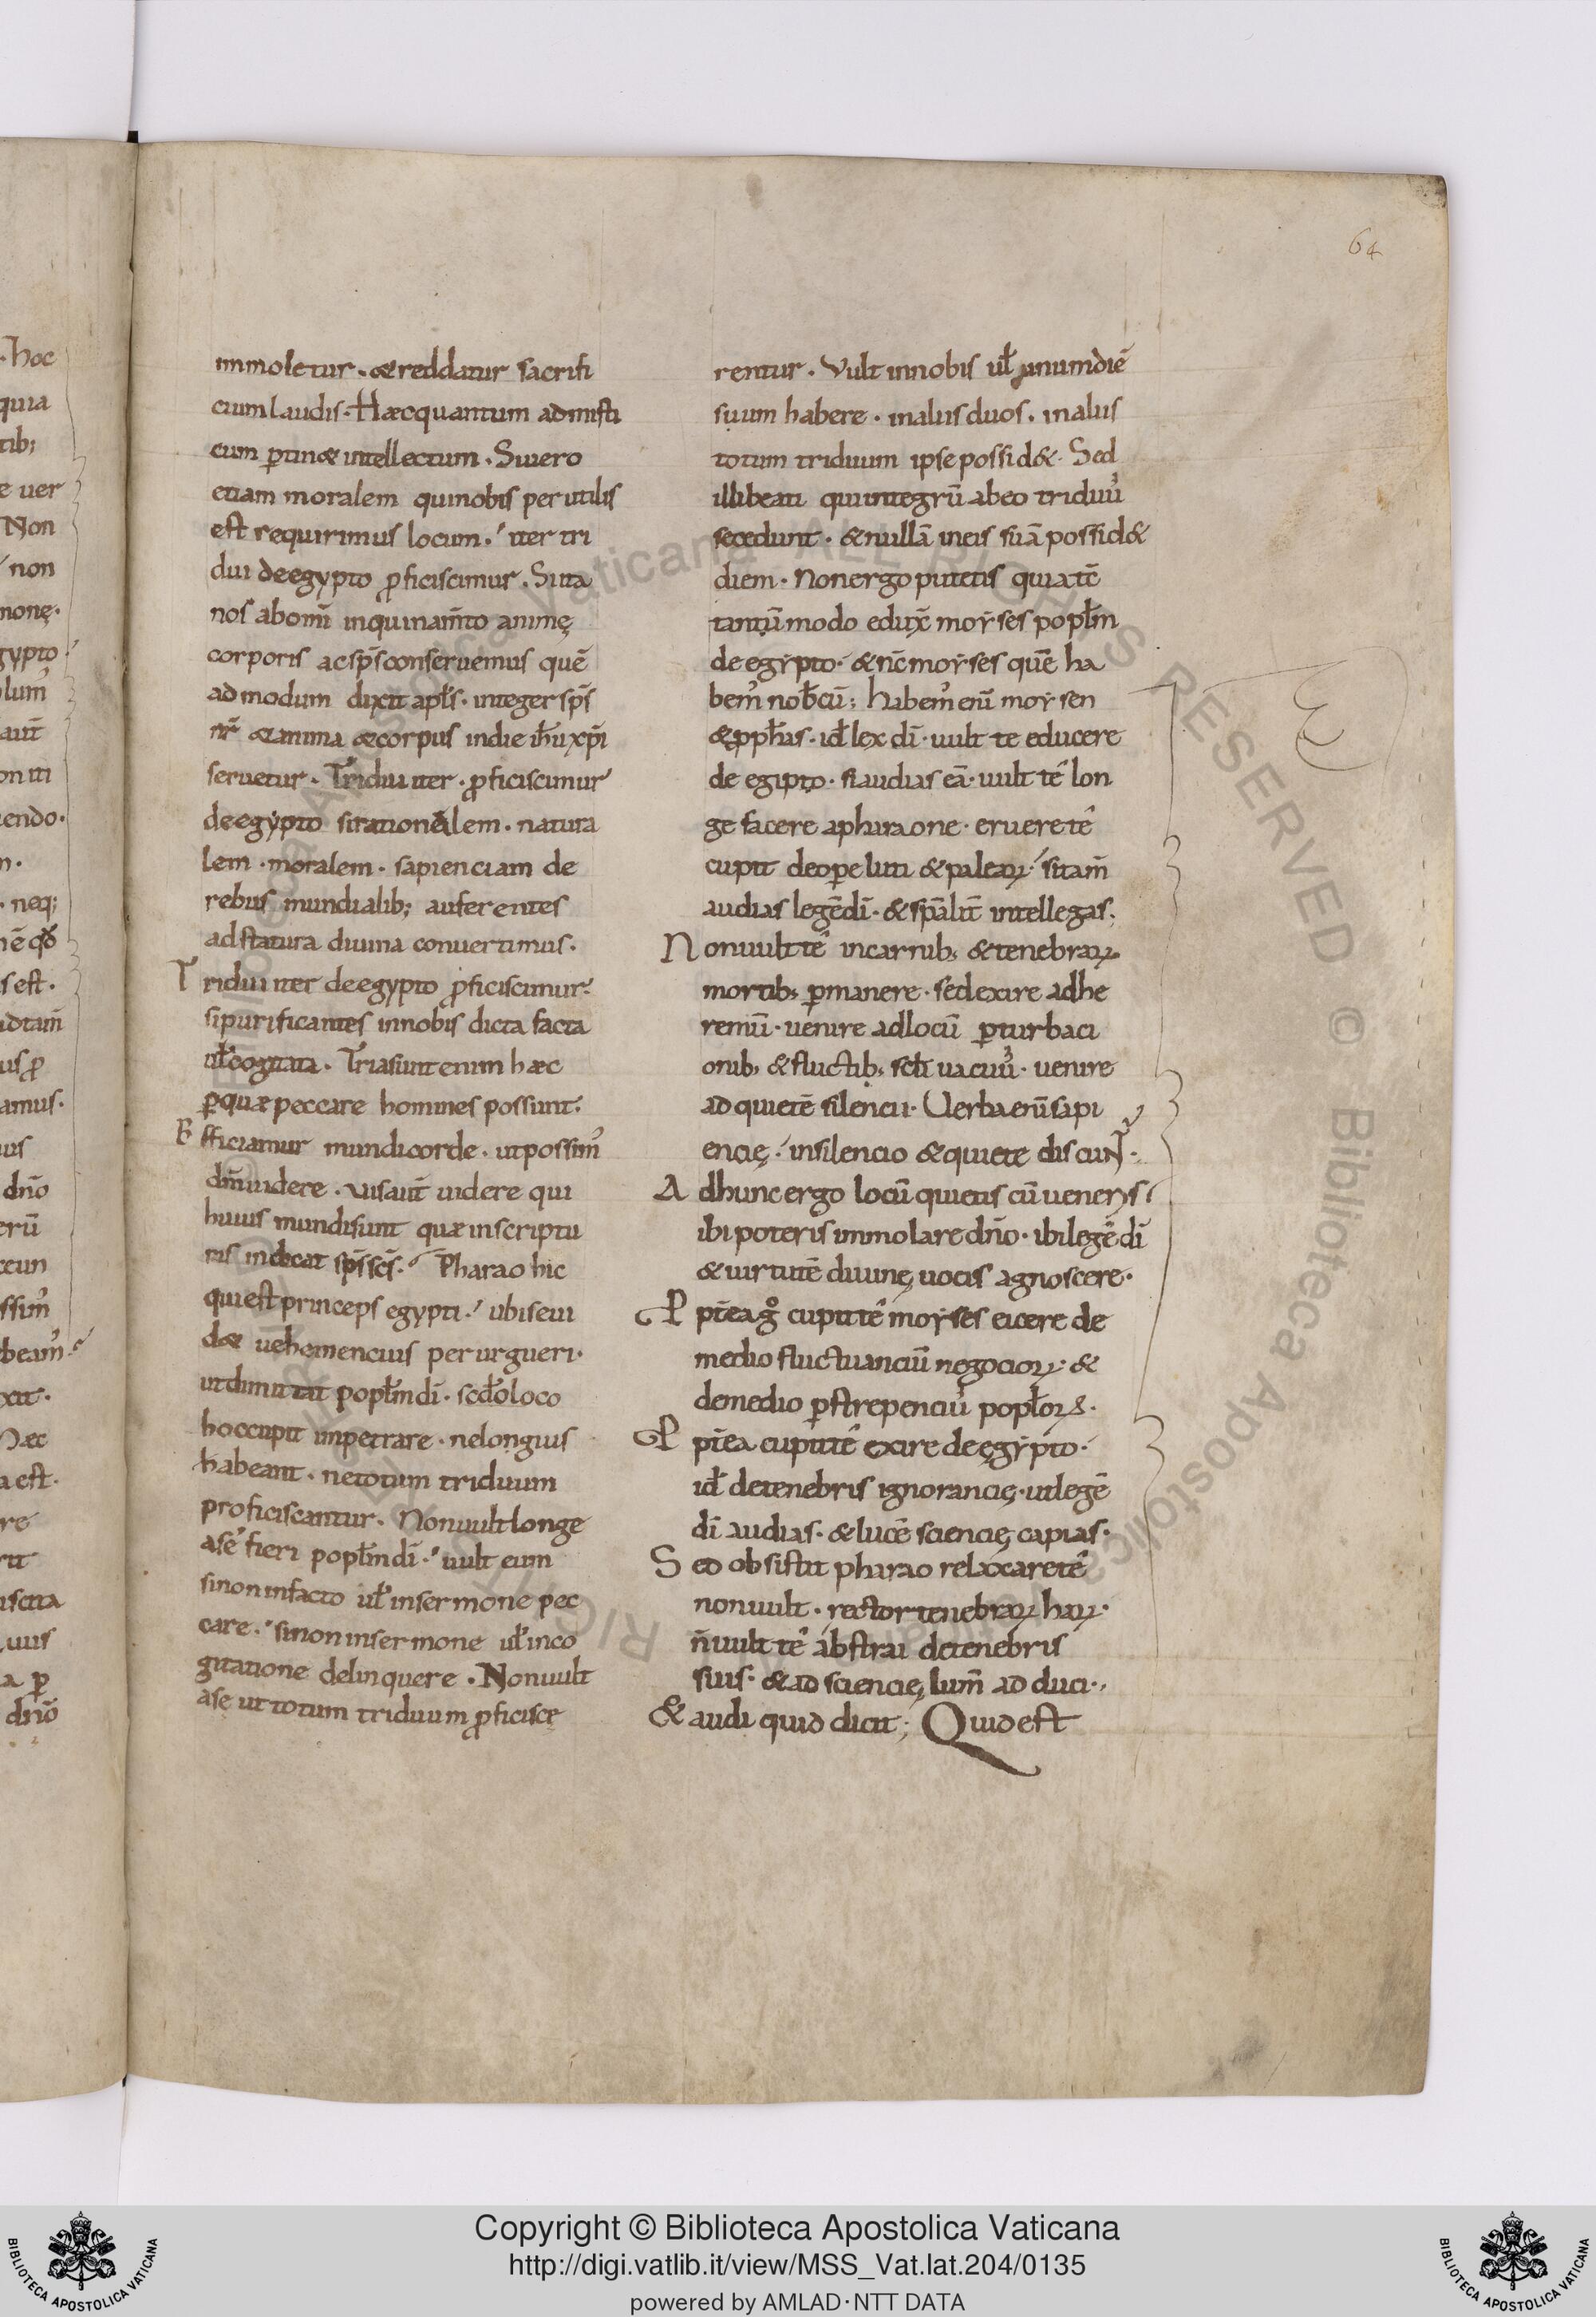 64
immoletur. & reddatur sacrifi
cium laudis. Hæc quantum ad misti
cum ꝑtin& intellectum. Si uero
etiam moralem qui nobis per utilis
est requirimus locum. iter tri
dui de egypto ꝓficiscimur. Si ita
nos ab om̄i inquinam̄to animę
corporis ac sp̄s conseruemus quē
ad modum dixit apl̄s. integer sp̄s
nr̄ & anima & corpus in die ih̄u xp̄i
seruetur. Tridui iter. ꝓficiscimur
de egypto si rationalem. natura
lem. moralem. sapienciam de
rebus mundialib; auferentes
ad statura diuina conuertimus.
Tridui iter de egypto ꝓficiscimur.
si purificantes in nobis dicta facta
ul̄ cogitata. Tria sunt enim hæc
ꝑ quæ peccare homines possunt.
Efficiamur mundi corde. ut possim᾽
dm̄ uidere. uis aut̄ uidere qui
huius mundi sunt quæ in scriptu
ris indicat sp̄s sc̄s. Pharao hic
qui est princeps egypti. ubi se ui
d& uehemencius per urgueri.
ut dimittat popl̄m dī. scd̄o loco
hoc cupit impetrare. ne longius
habeant. ne totum triduum
proficiscantur. Non uult longe
a se fieri popl̄m dī. uult eum
si non in facto ul̄ in sermone pec
care. si non in sermone ul̄ in co
gitatione delinquere. Non uult
a se ut totum triduum ꝓficisce
rentur. Vult in nobis ul̄ unum diē
suum habere. in aliis duos. in aliis
totum triduum ipse possid&. Sed
illi beati qui integrū ab eo triduū
secedunt. & nullā in eis suā possid&
diem. Non ergo putetis quia tc̄
tantū modo edux̄ moyses popl̄m
de egypto. & nc̄ moyses quē ha
bem᾽ nob̄cū; habem᾽ enī moysen
& pph̄as. id̄ lex dī. uult te educere
de egipto. si audias eā. uult te lon
ge facere a pharaone. eruere te
cupit de oꝑe luti & palearꝝ. si tam̄
audias legē dī. & sp̄alit̄ intellegas.
Non uult te in carnib; & tenebrarꝝ
mortib; ꝑmanere. sed exire ad he
remū. uenire ad locū ꝑturbaci
onib; & fluctib; scl̄i uacuū. uenire
ad quietē silencii. Uerba enī sapi
encię. in silencio & quiete discunt.
Ad hunc ergo locū quietis cū ueneris
ibi poteris immolare dn̄o. ibi legē dī
& uirtutē diuinę uocis agnoscere.
Ppt̄ea g° cupit te moyses eicere de
medio fluctuanciū negociorꝝ. &
de medio ꝑstrepenciū popl̄orꝝ.
Ppt̄ea cupit te exire de ęgypto.
id̄ de tenebris ignorancię. ut legē
dī audias. & lucē sciencię capias.
Sed obsistit pharao relaxare te
non uult. rector tenebrarꝝ harꝝ.
n̄ uult te abstrai de tenebris
suis. & ad sciencię lum̄ ad duci.
& audi quid dicit; Quid est
Copyright © Biblioteca Apostolica Vaticana
http://digi.vatlib.it/view/MSS_Vat.lat.204/0135
powered by AMLAD·NTT DATA